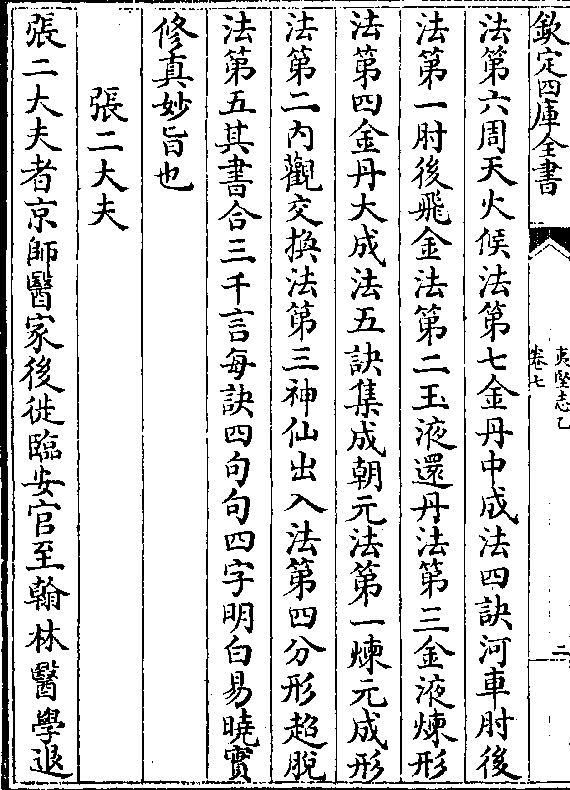 欽定四庫全書
夷堅志乙
卷七
二
法第六周天火候法第七金丹中成法四訣河車肘後
法第一肘後飛金法第二玉液還丹法第三金液煉形
法第四金丹大成法五訣集成朝元法第一煉元成形
法第二內觀交換法第三神仙出入法第四分形超脫
法第五其書合三千言每訣四句句四字明白易曉實
修真妙旨也
張二大夫
張二大夫者京師醫家後徙臨安官至翰林醫學退